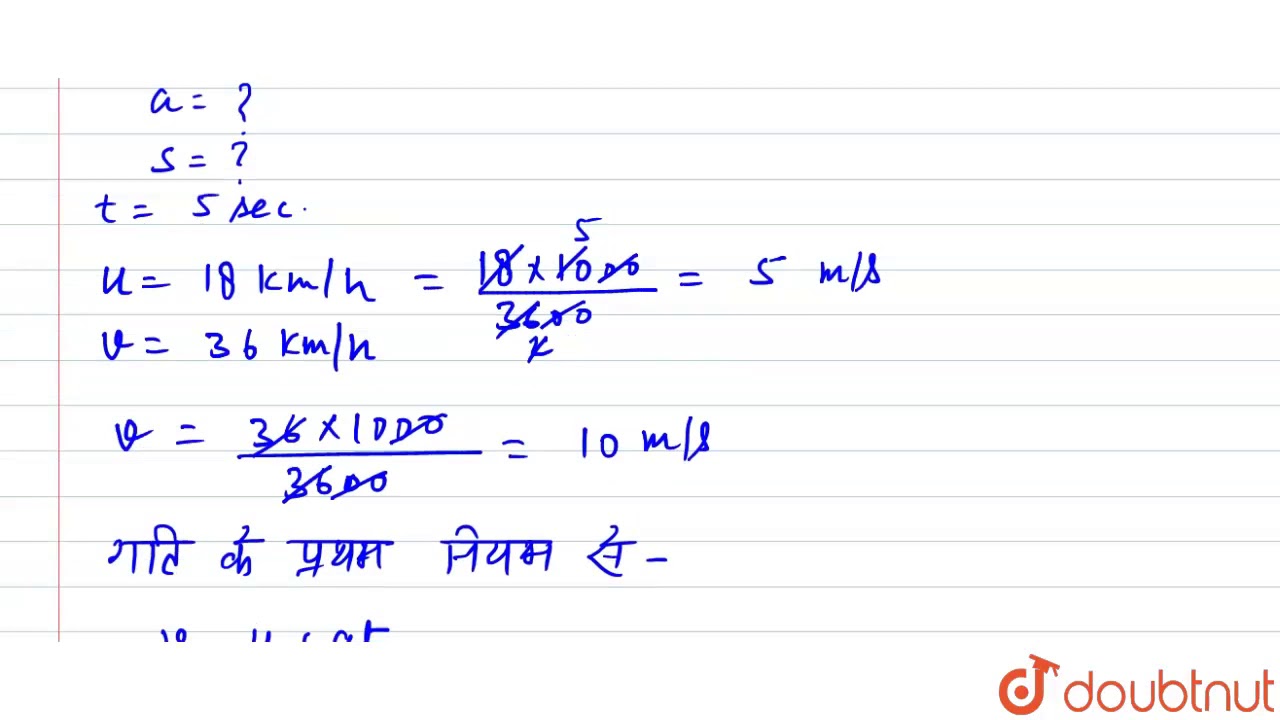 a = ?
s = ?
t = 5 sec.
u = 18 km/h = 18 × 1000 / 3600 = 5 m/s
5
v = 36 km/h
v = 36 × 1000 / 3600 = 10 m/s
गति के प्रथम नियम से -
v u + at
doubtnut